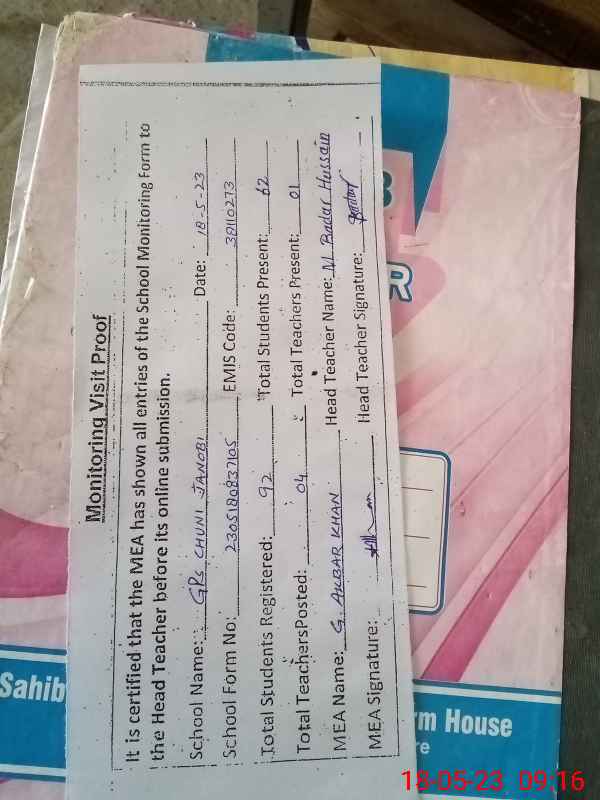 Monitoring Visit Proof
It is certified that the MEA has shown all entries of the School Monitoring Form to
the Head Teacher before its online submission.
School Name: GPS CHUNI JANOBI Date: 18-5-23
School Form No: 2305180837105 EMIS Code: 38110273
Total Students Registered: 92 Total Students Present: 62
Total TeachersPosted: 04 Total Teachers Present: 01
MEA Name: G. AKBAR KHAN Head Teacher Name: M Badar Hussain
MEA Signature: Head Teacher Signature:
Sahib
rm House
re
R
18-05-23 09:16